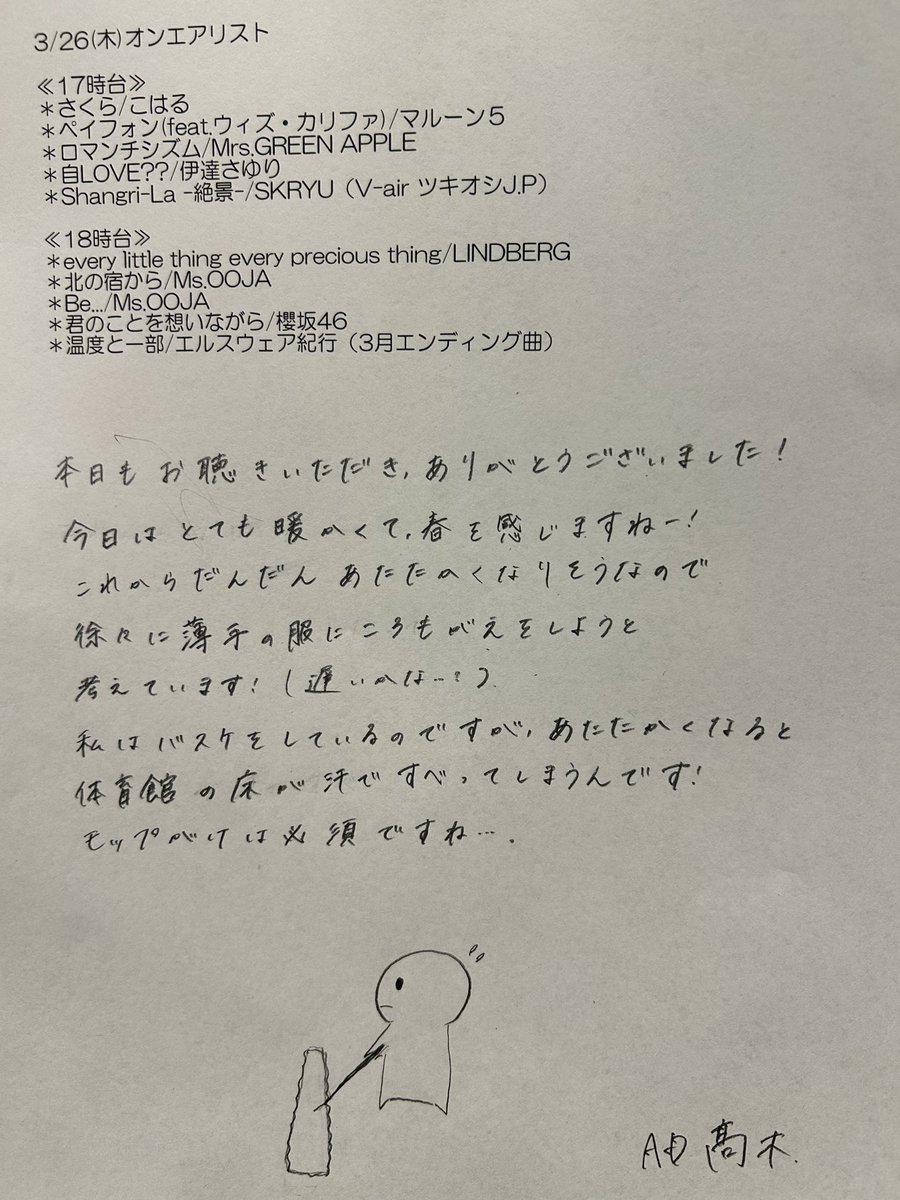 3/26(木)オンエアリスト
≪17時台≫
＊さくら/こはる
＊ペイフォン(feat.ウィズ・カリファ)/マルーン5
＊ロマンチシズム/Mrs.GREEN APPLE
＊自LOVE??/伊達さゆり
＊Shangri-La -絶景-/SKRYU（V-air ツキオシJ.P）
≪18時台≫
＊every little thing every precious thing/LINDBERG
＊北の宿から/Ms.OOJA
＊Be.../Ms.OOJA
＊君のことを想いながら/櫻坂46
＊温度と一部/エルスウェア紀行（3月エンディング曲）
本日もお聴きいただき、ありがとうございました!
今日はとても暖かくて、春を感じますねー!
これからだんだんあたたかくなりそうなので
徐々に薄手の服にころもがえをしようと
考えています!(遅いかな…?)
私はバスケをしているのですが、あたたかくなると
体育館の床が汗ですべってしまうんです!
モップがけは必須ですね….
AD 髙木.